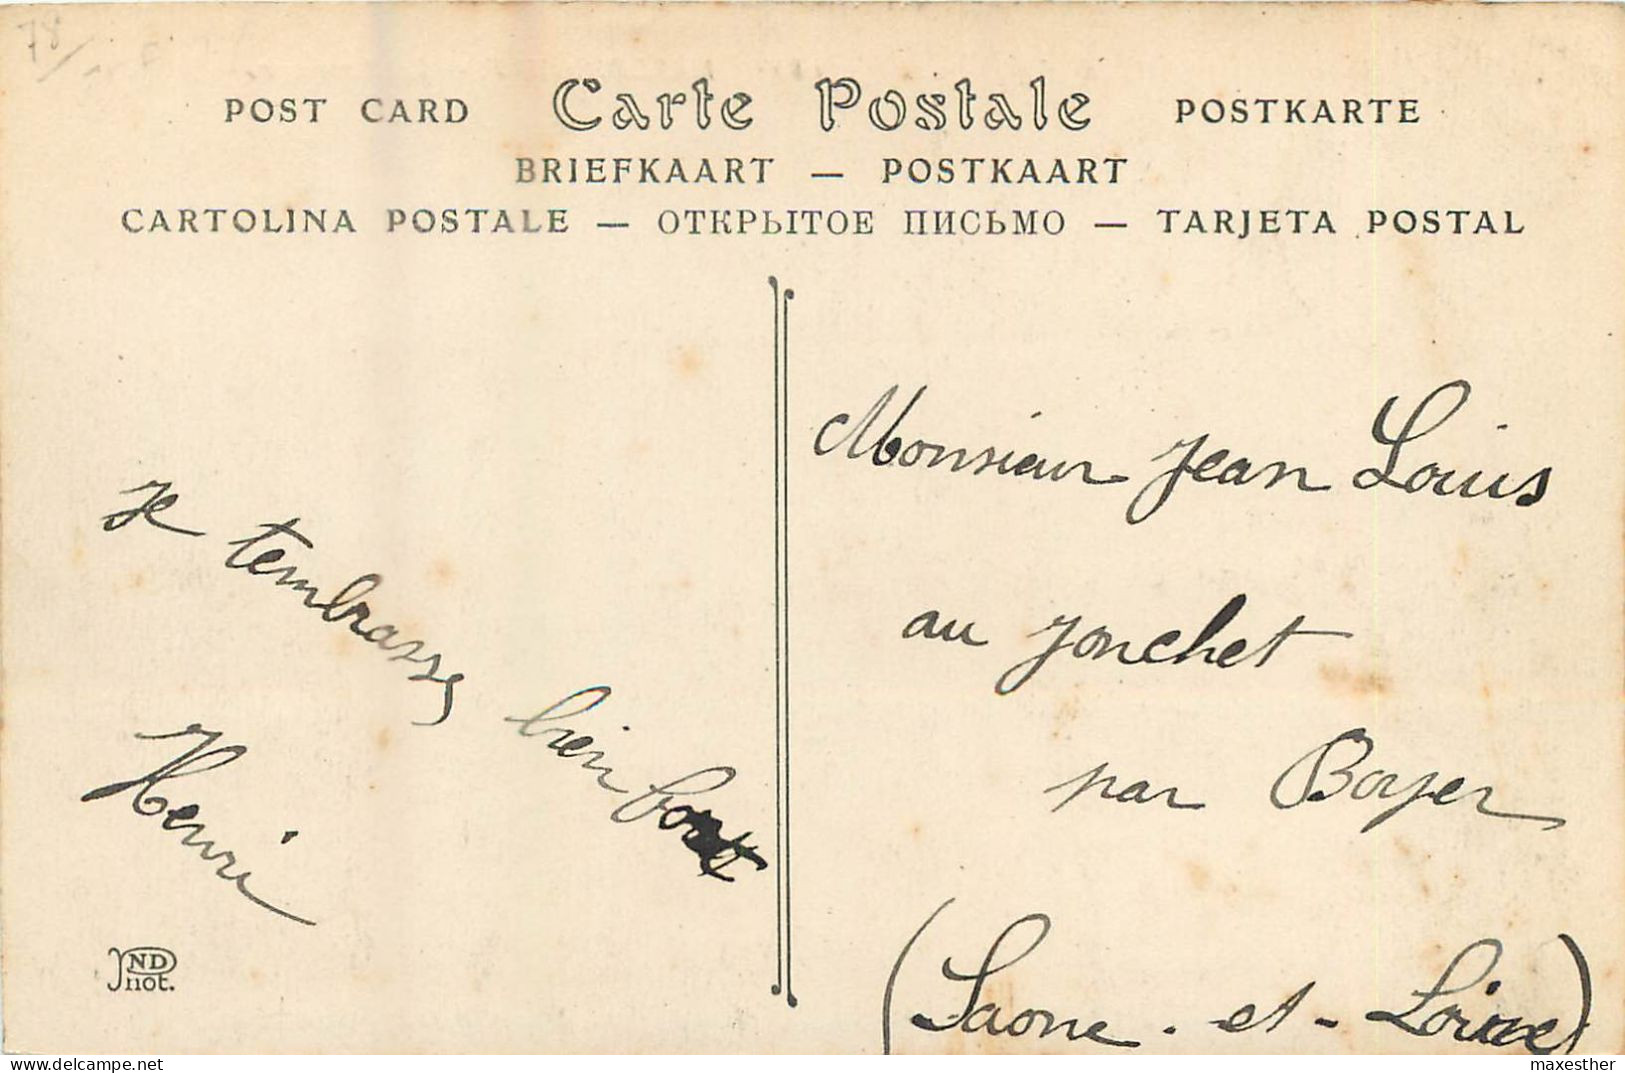 78/
POST CARD Carte Postale POSTKARTE
BRIEFKAART — POSTKAART
CARTOLINA POSTALE — ОТКРЫТОЕ ПИСЬМО — TARJETA POSTAL
Je tembrasse bien fort
Henri
ND
Phot.
Monsieur Jean Louis
au Jonchet
par Boyer
(Saone-et-Loire)
delcampe.net
maxesther